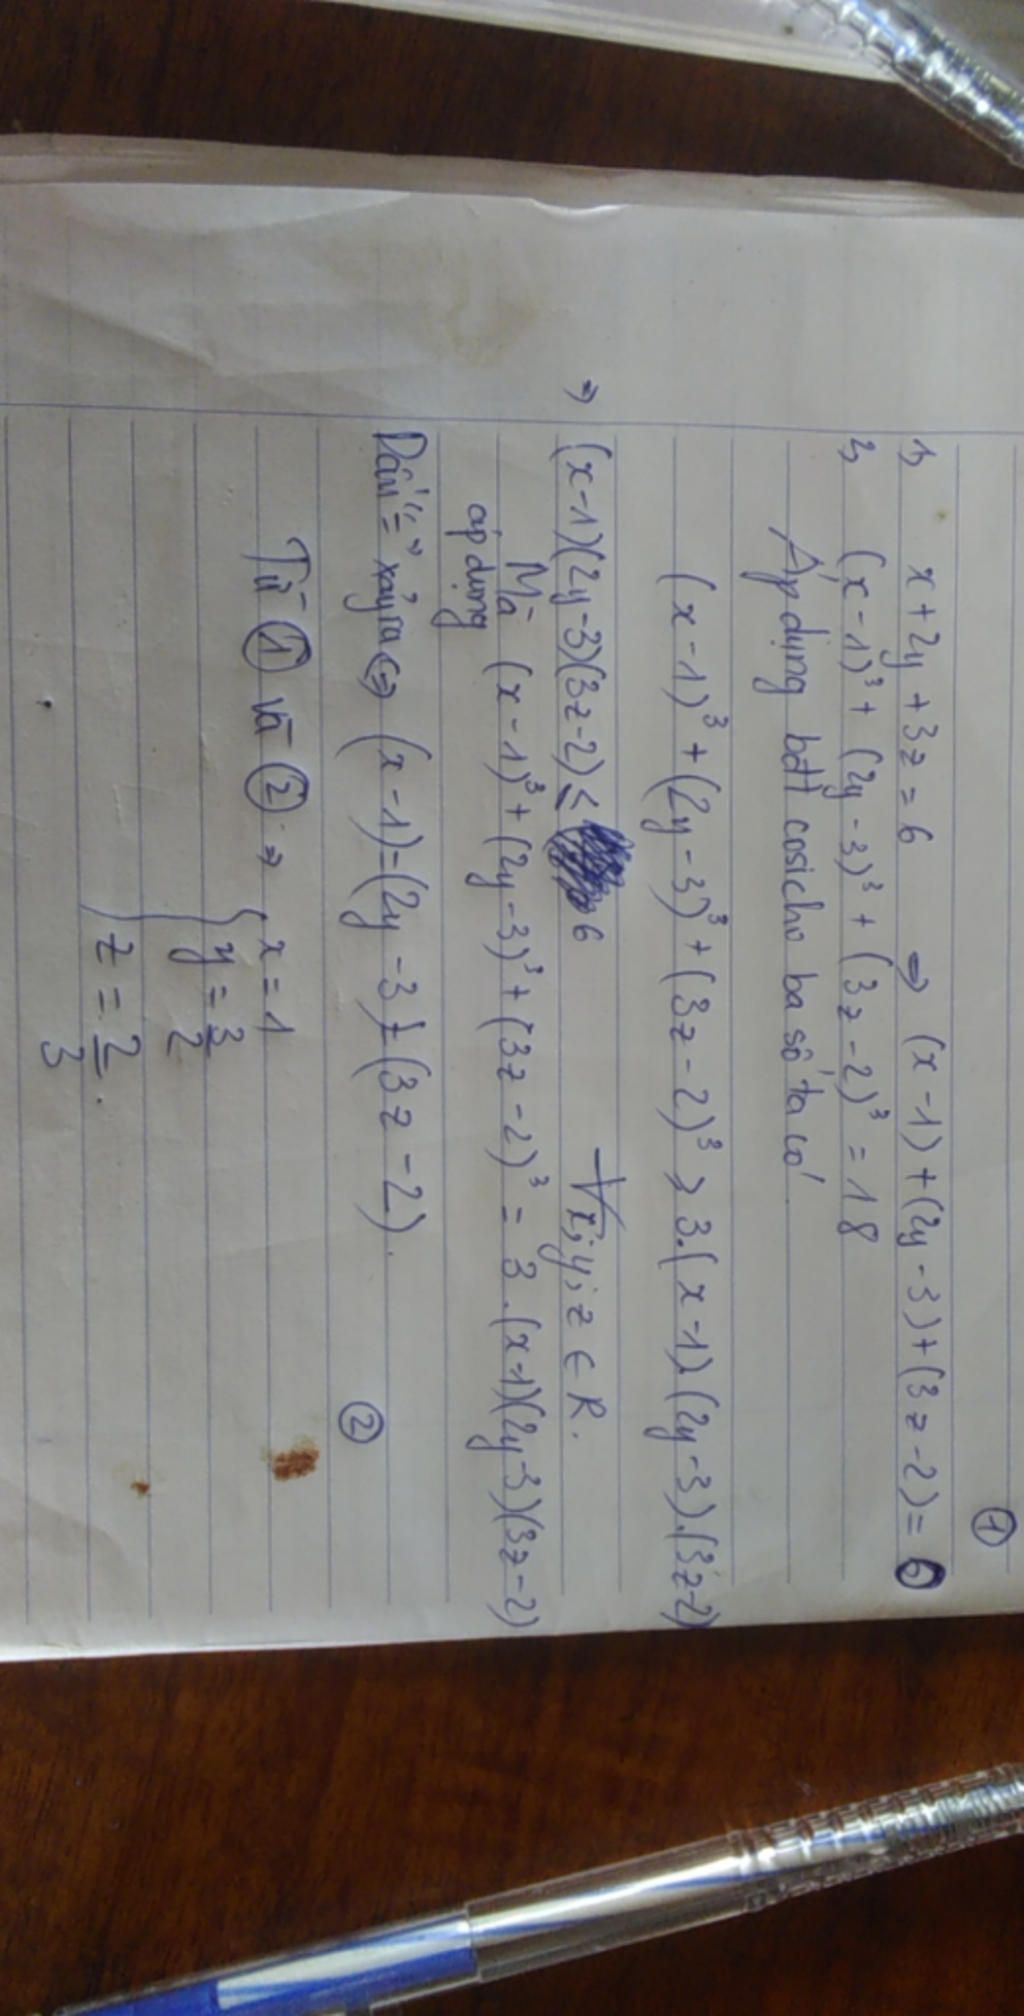 ①
1, x + 2y + 3z = 6 ⇒ (x - 1) + (2y - 3) + (3z - 2) = 0
2, (x - 1)³ + (2y - 3)³ + (3z - 2)³ = 18
Áp dụng bđt cosi cho ba số ta có
(x - 1)³ + (2y - 3)³ + (3z - 2)³ ⩾ 3.(x - 1).(2y - 3).(3z - 2)
⇒ (x - 1)(2y - 3)(3z - 2) ≤ 6 ∀x; y; z ∈ R.
Mà (x - 1)³ + (2y - 3)³ + (3z - 2)³ = 3.(x - 1)(2y - 3)(3z - 2)
áp dụng
Dấu "=" xảy ra ⇔ (x - 1) = (2y - 3) = (3z - 2). ②
Từ ① và ② ⇒ { x = 1
y = 3/2
z = 2/3.